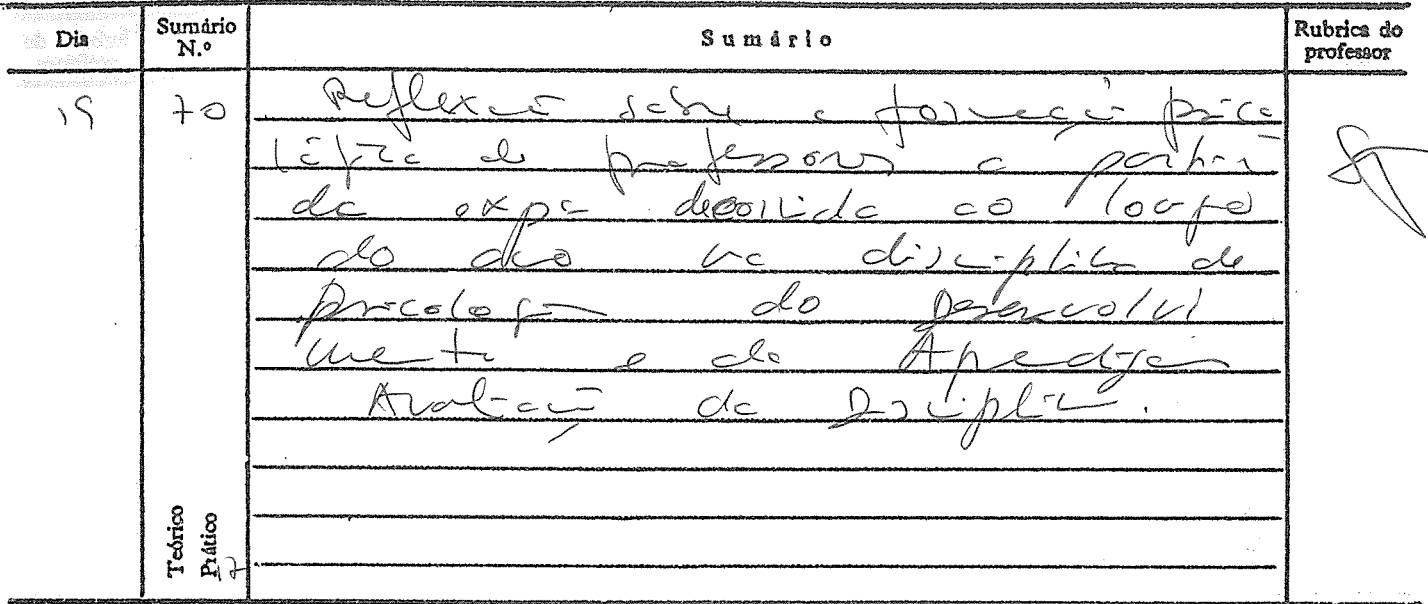 Dia Sumário N.º Sumário Rubrica do professor
19 70 Reflexão sobre a formação psico
lógica de professores a partir
da expª decorrida ao longo
do ano na disciplina de
psicologia do Desenvolvi
mento e da Aprendizagem
Avaliação da Disciplina.
Teórico
Prático 17